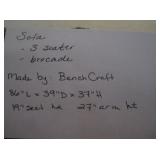 Sofa
- 3 seater
- brocade
Made by: BenchCraft
86"L x 39"D x 37"H
19" seat ht 27" arm ht